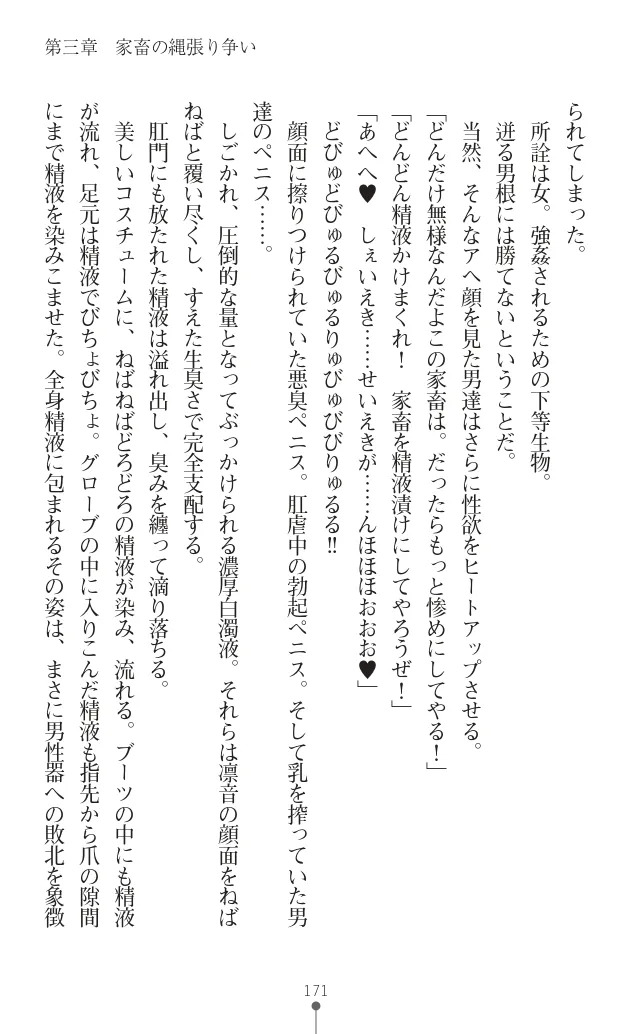 第三章　家畜の縄張り争い
られてしまった。
　所詮は女。強姦されるための下等生物。
　迸る男根には勝てないということだ。
　当然、そんなアヘ顔を見た男達はさらに性欲をヒートアップさせる。
「どんだけ無様なんだよこの家畜は。だったらもっと惨めにしてやる！」
「どんどん精液かけまくれ！　家畜を精液漬けにしてやろうぜ！」
「あへへ♥　しぇいえき……せいえきが……んほほほおおお♥」
　どびゅどびゅるびゅるりゅびゅびびりゅるる‼
　顔面に擦りつけられていた悪臭ペニス。肛虐中の勃起ペニス。そして乳を搾っていた男
達のペニス……。
　しごかれ、圧倒的な量となってぶっかけられる濃厚白濁液。それらは凛音の顔面をねば
ねばと覆い尽くし、すえた生臭さで完全支配する。
　肛門にも放たれた精液は溢れ出し、臭みを纏って滴り落ちる。
　美しいコスチュームに、ねばねばどろどろの精液が染み、流れる。ブーツの中にも精液
が流れ、足元は精液でびちょびちょ。グローブの中に入りこんだ精液も指先から爪の隙間
にまで精液を染みこませた。全身精液に包まれるその姿は、まさに男性器への敗北を象徴
171